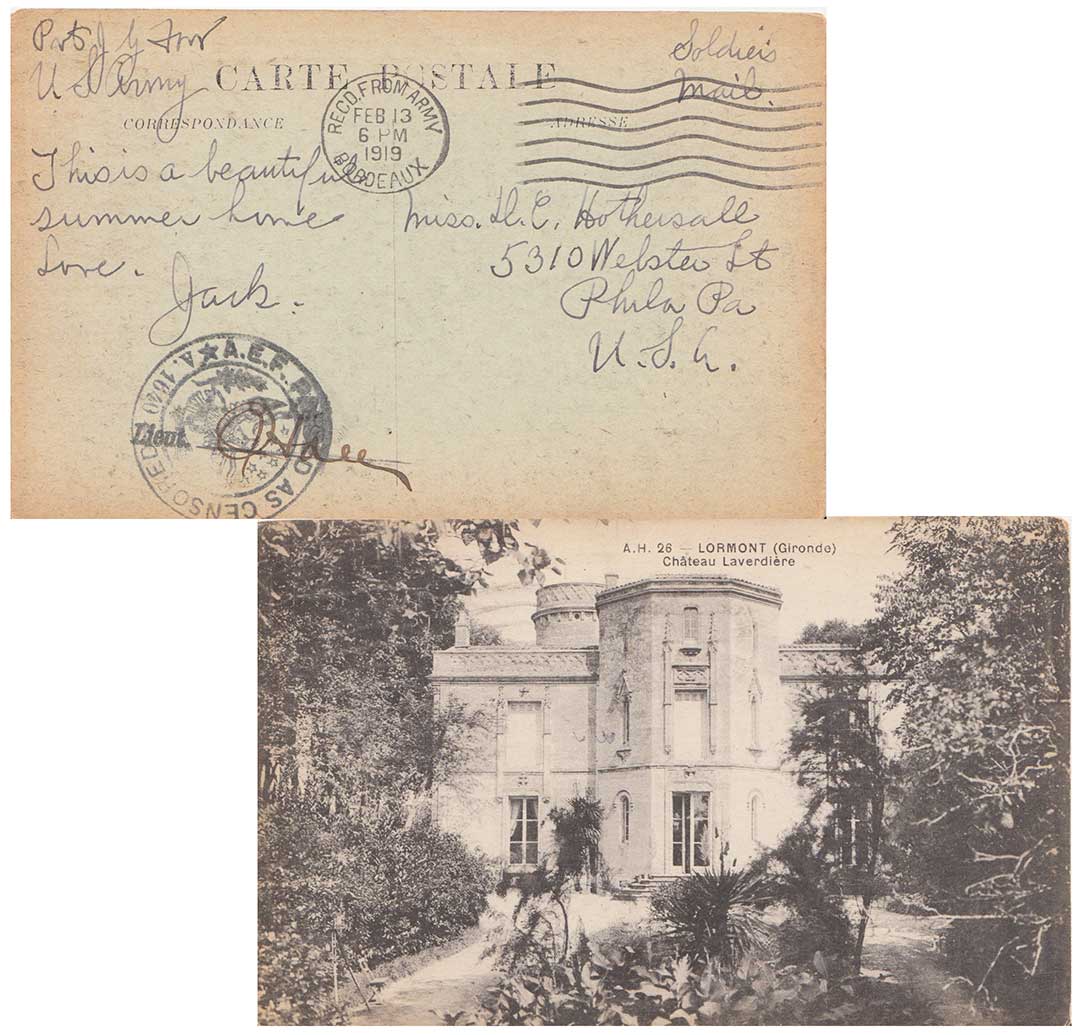 Pvt J G Forr
U S Army
Soldier's
Mail.
CARTE POSTALE
CORRESPONDANCE
ADRESSE
RECD. FROM ARMY
FEB 13
6 PM
1919
BORDEAUX
This is a beautiful
summer home
Love.
Jack.
Miss. H. E. Hothersall
5310 Webster St
Phila Pa
U. S. A.
A.E.F. PASSED AS CENSORED A. 1640
Lieut.
A.H. 26 — LORMONT (Gironde)
Château Laverdière